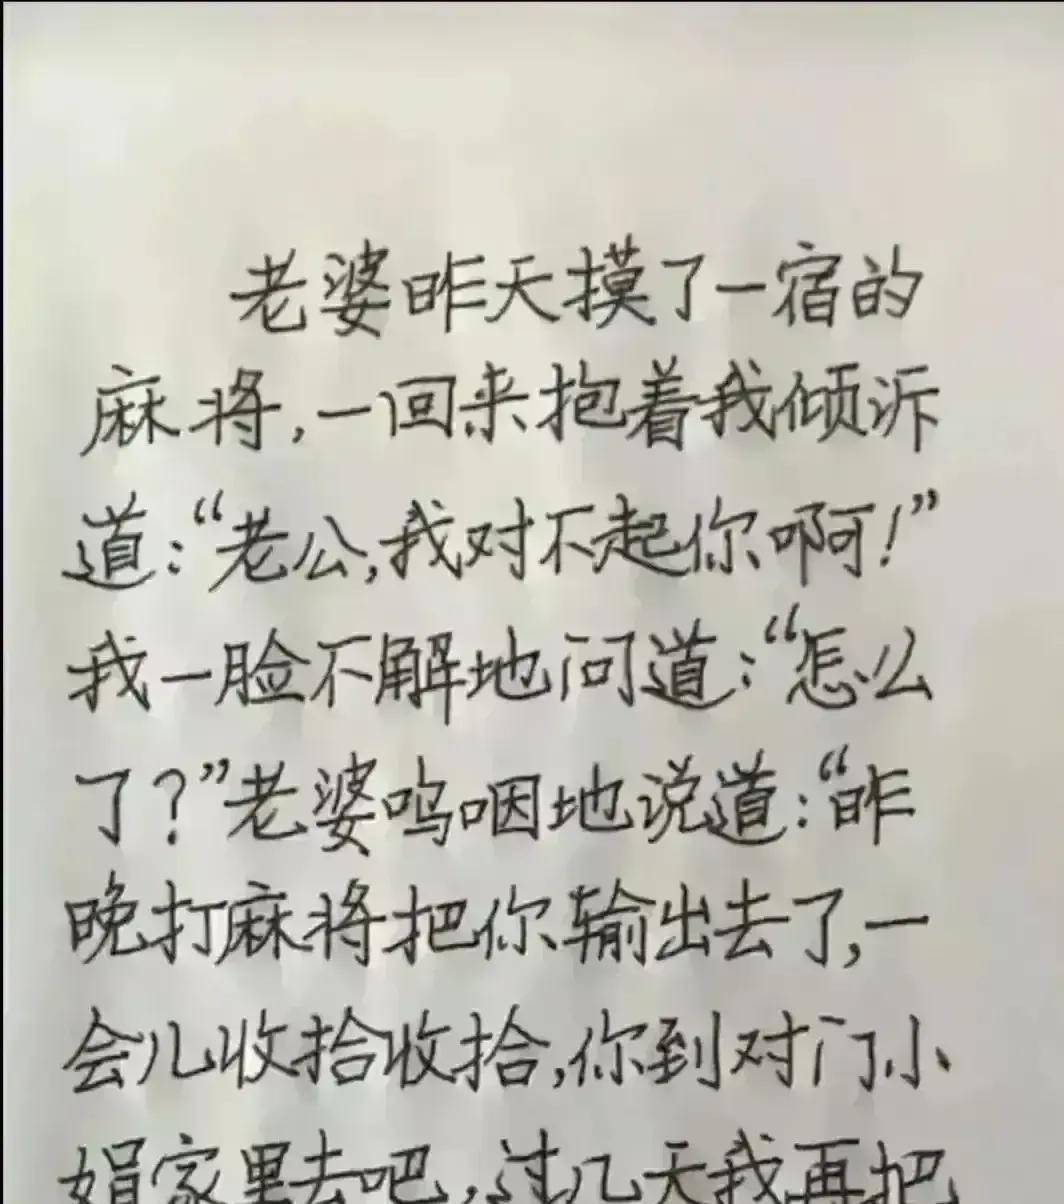 老婆昨天摸了一宿的
麻将,一回来抱着我倾诉
道:“老公,我对不起你啊!”
我一脸不解地问道:“怎么
了?”老婆呜咽地说道:“昨
晚打麻将把你输出去了,一
会儿收拾收拾,你到对门小
娟家里去吧,过几天我再把